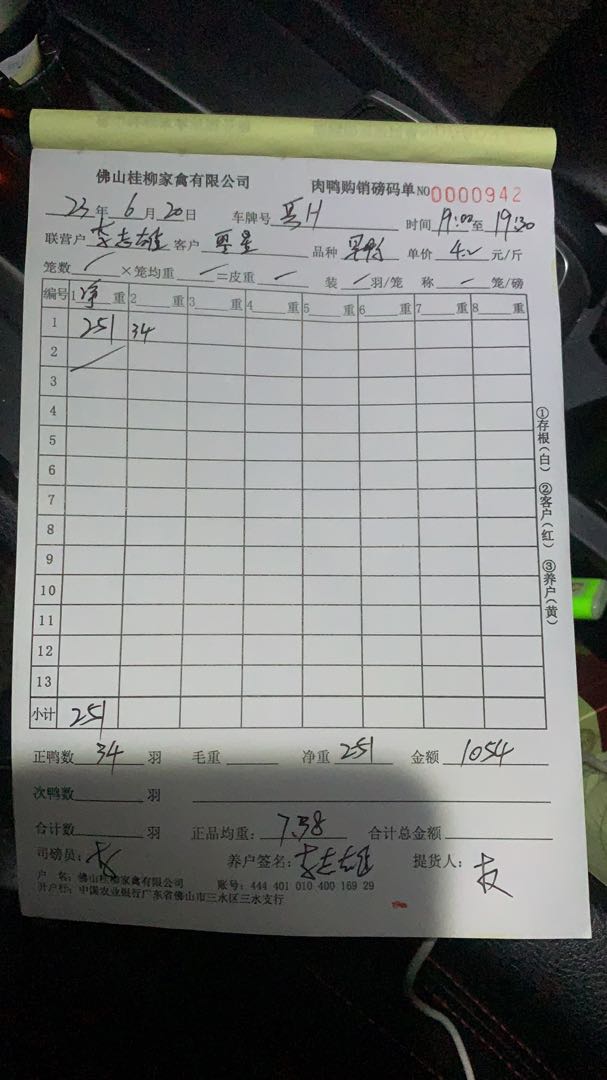 佛山桂柳家禽有限公司 肉鸭购销磅码单 NO 0000942
23年6月20日 车牌号 时间 19:00至19:30
联营户 李志雄 客户 品种 单价 4.2 元/斤
笼数 / ×笼均重 / =皮重 / 装 / 羽/笼 称 / 笼/磅
编号 1 净 重 2 重 3 重 4 重 5 重 6 重 7 重 8 重
1 251 34
2 /
3
4
5
6
7
8
9
10
11
12
13
小计 251
正鸭数 34 羽 毛重 净重 251 金额 1054
次鸭数 羽
合计数 羽 正品均重: 7.38 合计总金额
司磅员: 养户签名: 李志雄 提货人:
户 名: 佛山桂柳家禽有限公司 账号: 444 401 010 400 169 29
开户行: 中国农业银行广东省佛山市三水区三水支行
①存根(白) ②客户(红) ③养户(黄)